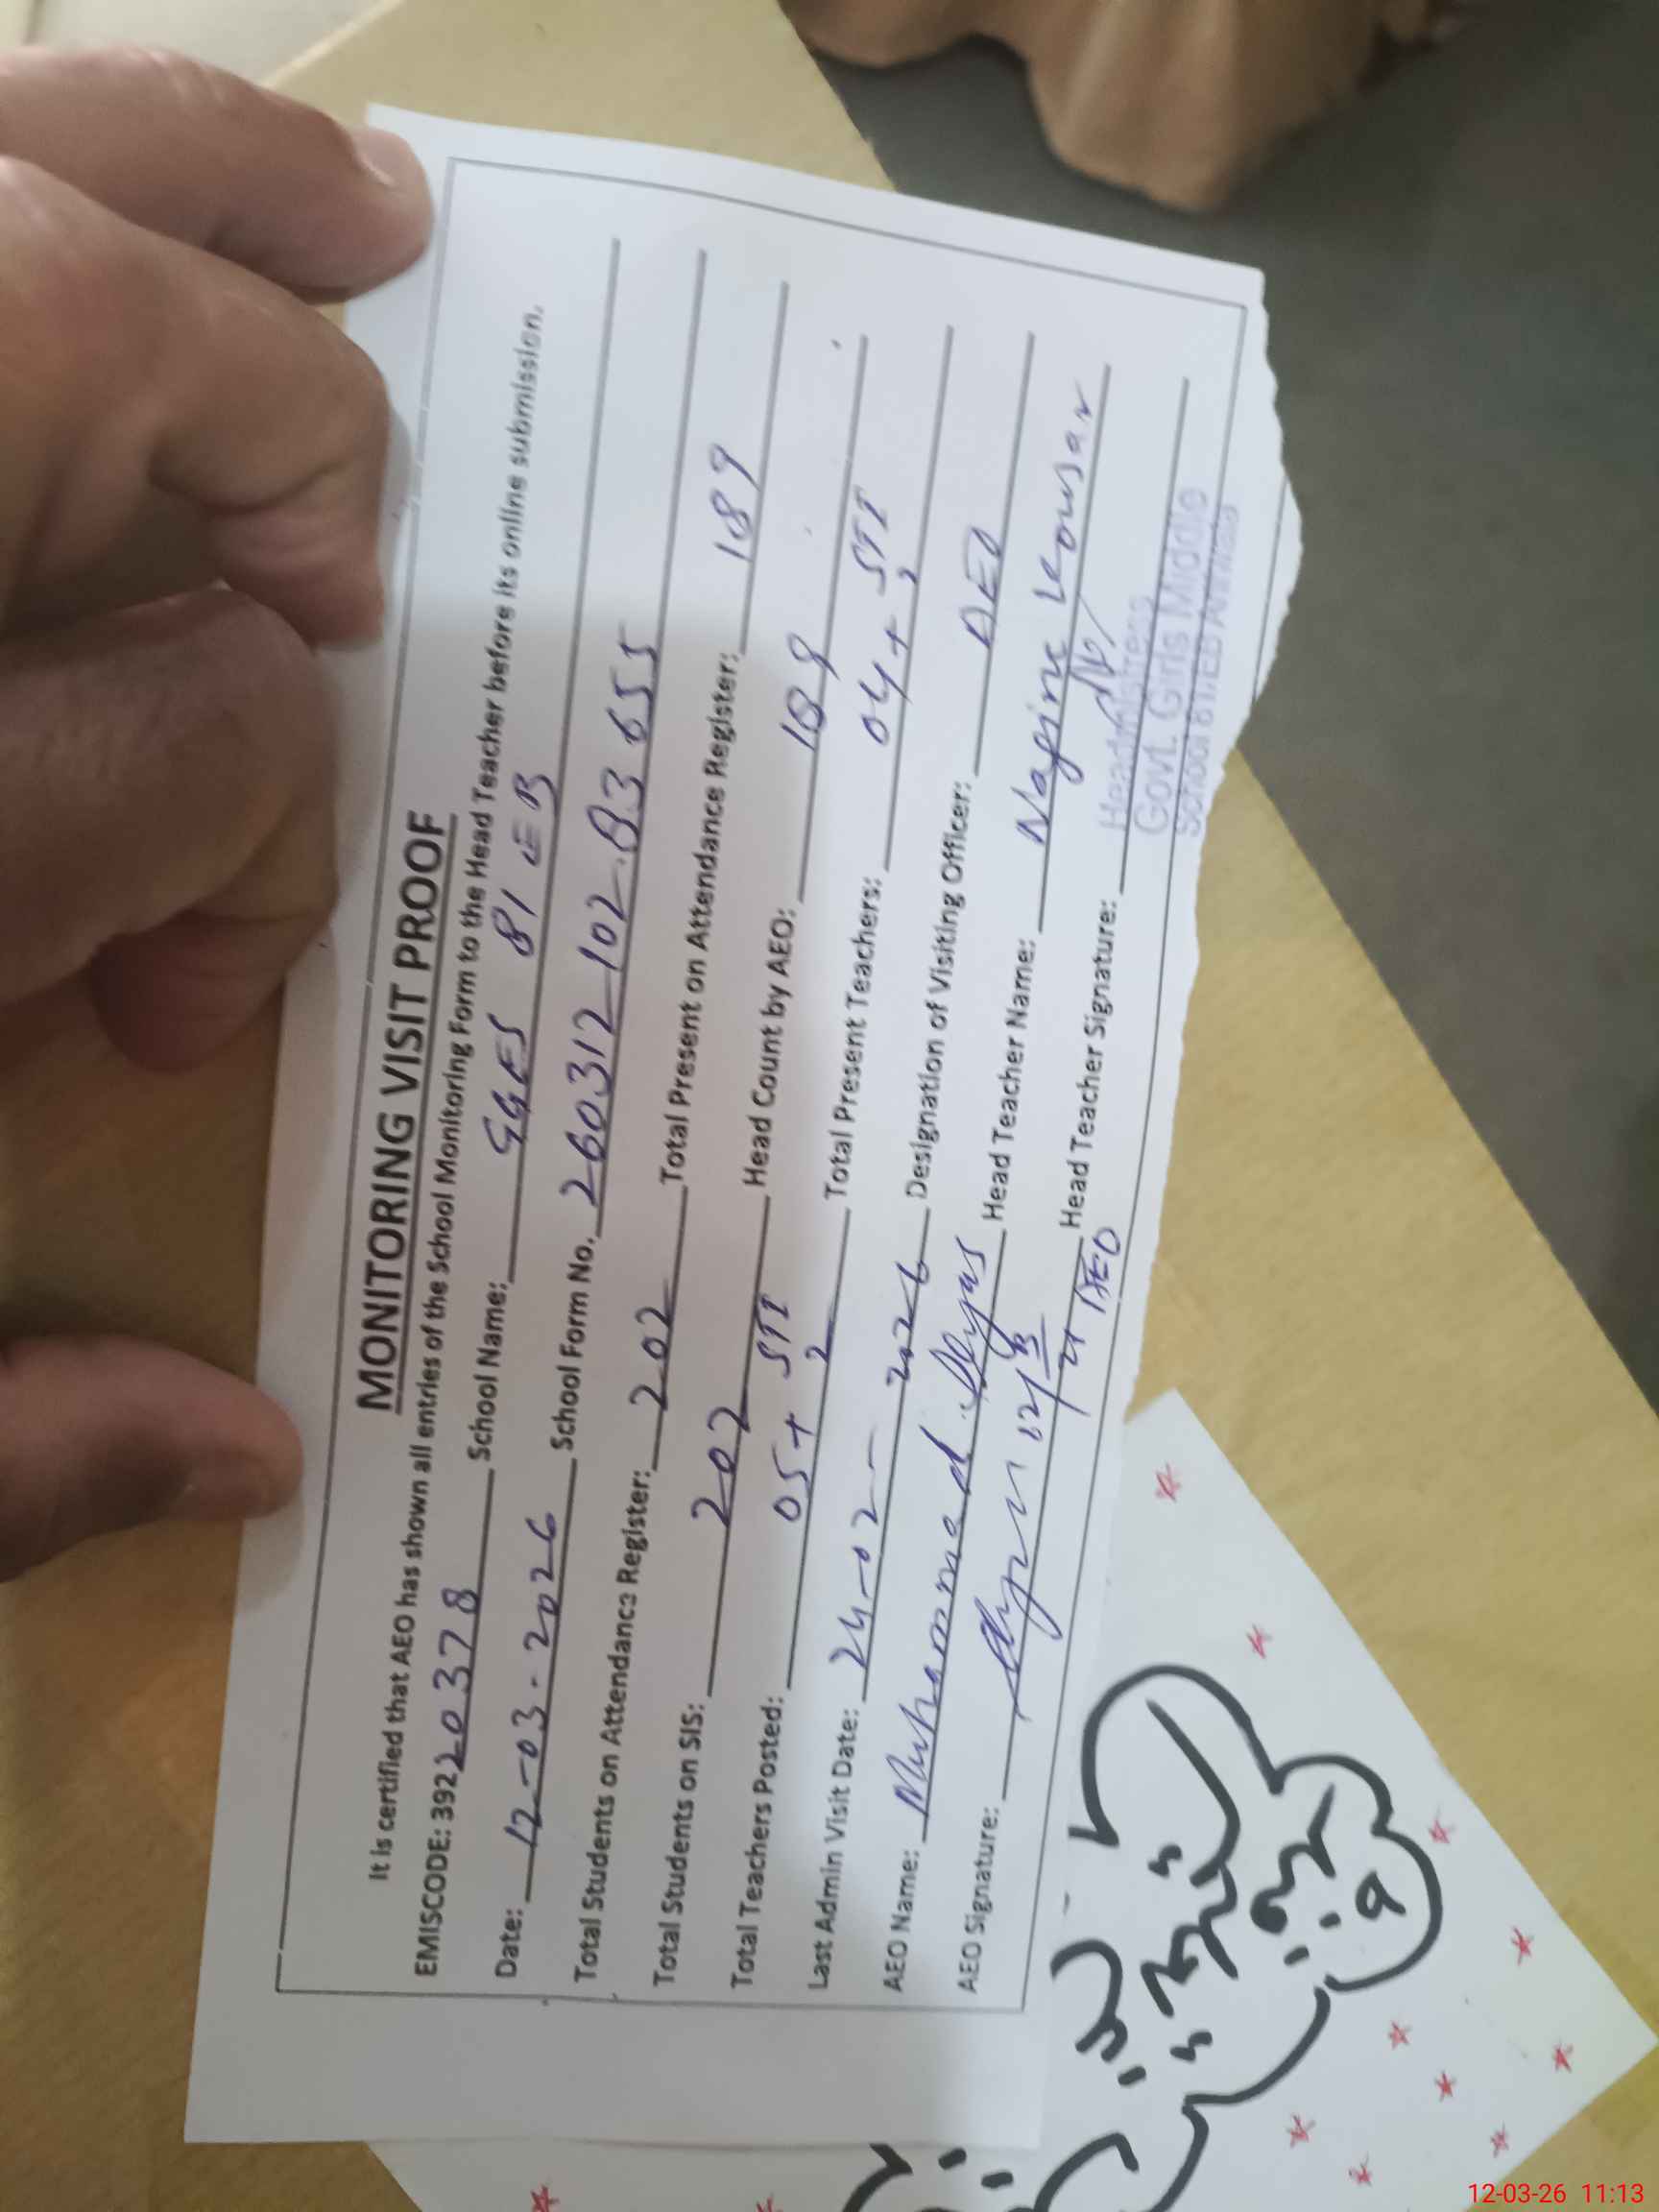 MONITORING VISIT PROOF
It is certified that AEO has shown all entries of the School Monitoring Form to the Head Teacher before its online submission.
EMISCODE: 39220378 School Name: GGES 81 EB
Date: 12-03-2026 School Form No. 260312102 83655
Total Students on Attendance Register: 202 Total Present on Attendance Register: 189
Total Students on SIS: 202 Head Count by AEO: 189
Total Teachers Posted: 05+ STI 2 Total Present Teachers: 04+ STI 2
Last Admin Visit Date: 24-02-2026 Designation of Visiting Officer: AEO
AEO Name: Muhammad Ilyas Head Teacher Name: Nagina Kousar
AEO Signature: 12/3 AEO Head Teacher Signature:
Headmistress
Govt. Girls Middle
School 81/EB Arifwala
12-03-26 11:13